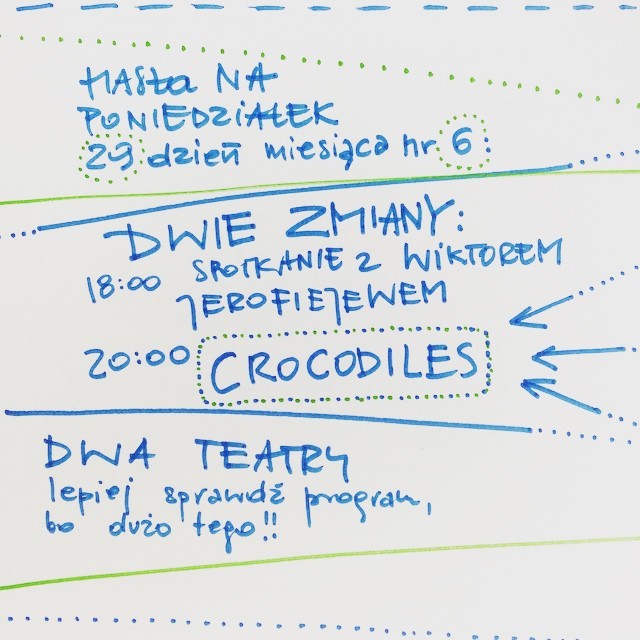 HASŁA NA
PONIEDZIAŁEK
29 dzień miesiąca nr 6:
DWIE ZMIANY:
18:00 SPOTKANIE Z WIKTOREM
JEROFIEJEWEM
20:00 CROCODILES
DWA TEATRY
lepiej sprawdź program,
bo dużo tego!!